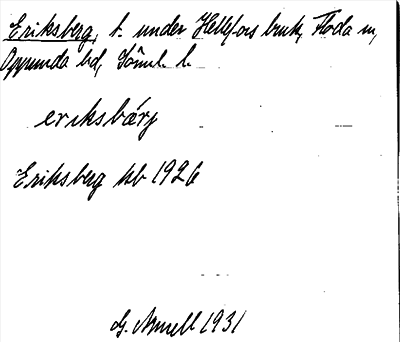 Eriksberg, t. under Hällefors bruk, Floda sn,
Oppunda hd, Söml. l.
eriksbärj
Eriksberg kb 1926
G. Arnell 1931